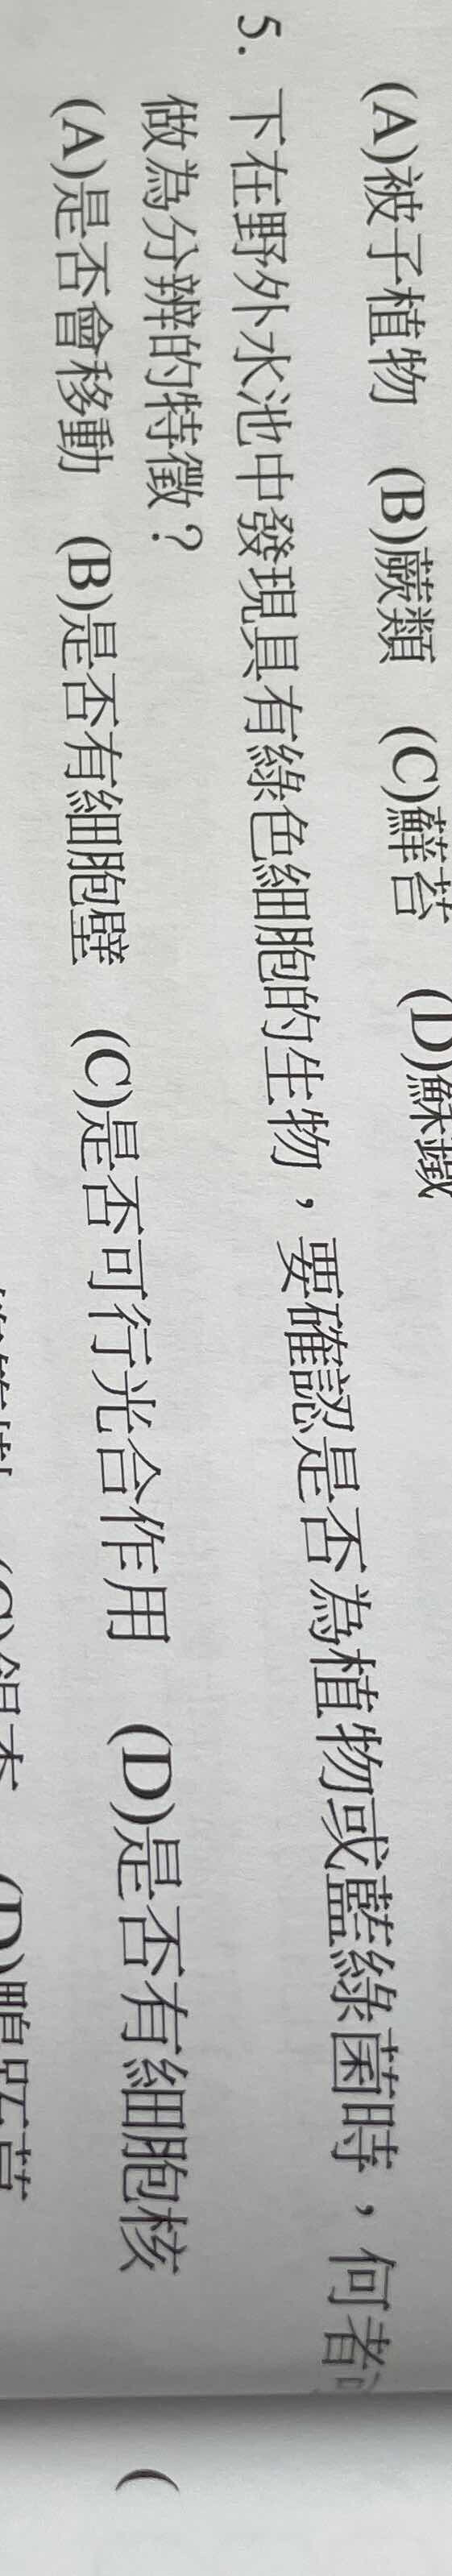 (A)被子植物 (B)蕨類 (C)蘚苔 (D)蘇鐵
5. 下在野外水池中發現具有綠色細胞的生物，要確認是否為植物或藍綠菌時，何者
做為分辨的特徵？
(A)是否會移動 (B)是否有細胞壁 (C)是否可行光合作用 (D)是否有細胞核 (
(C)銀杏 (D)鴨跖草